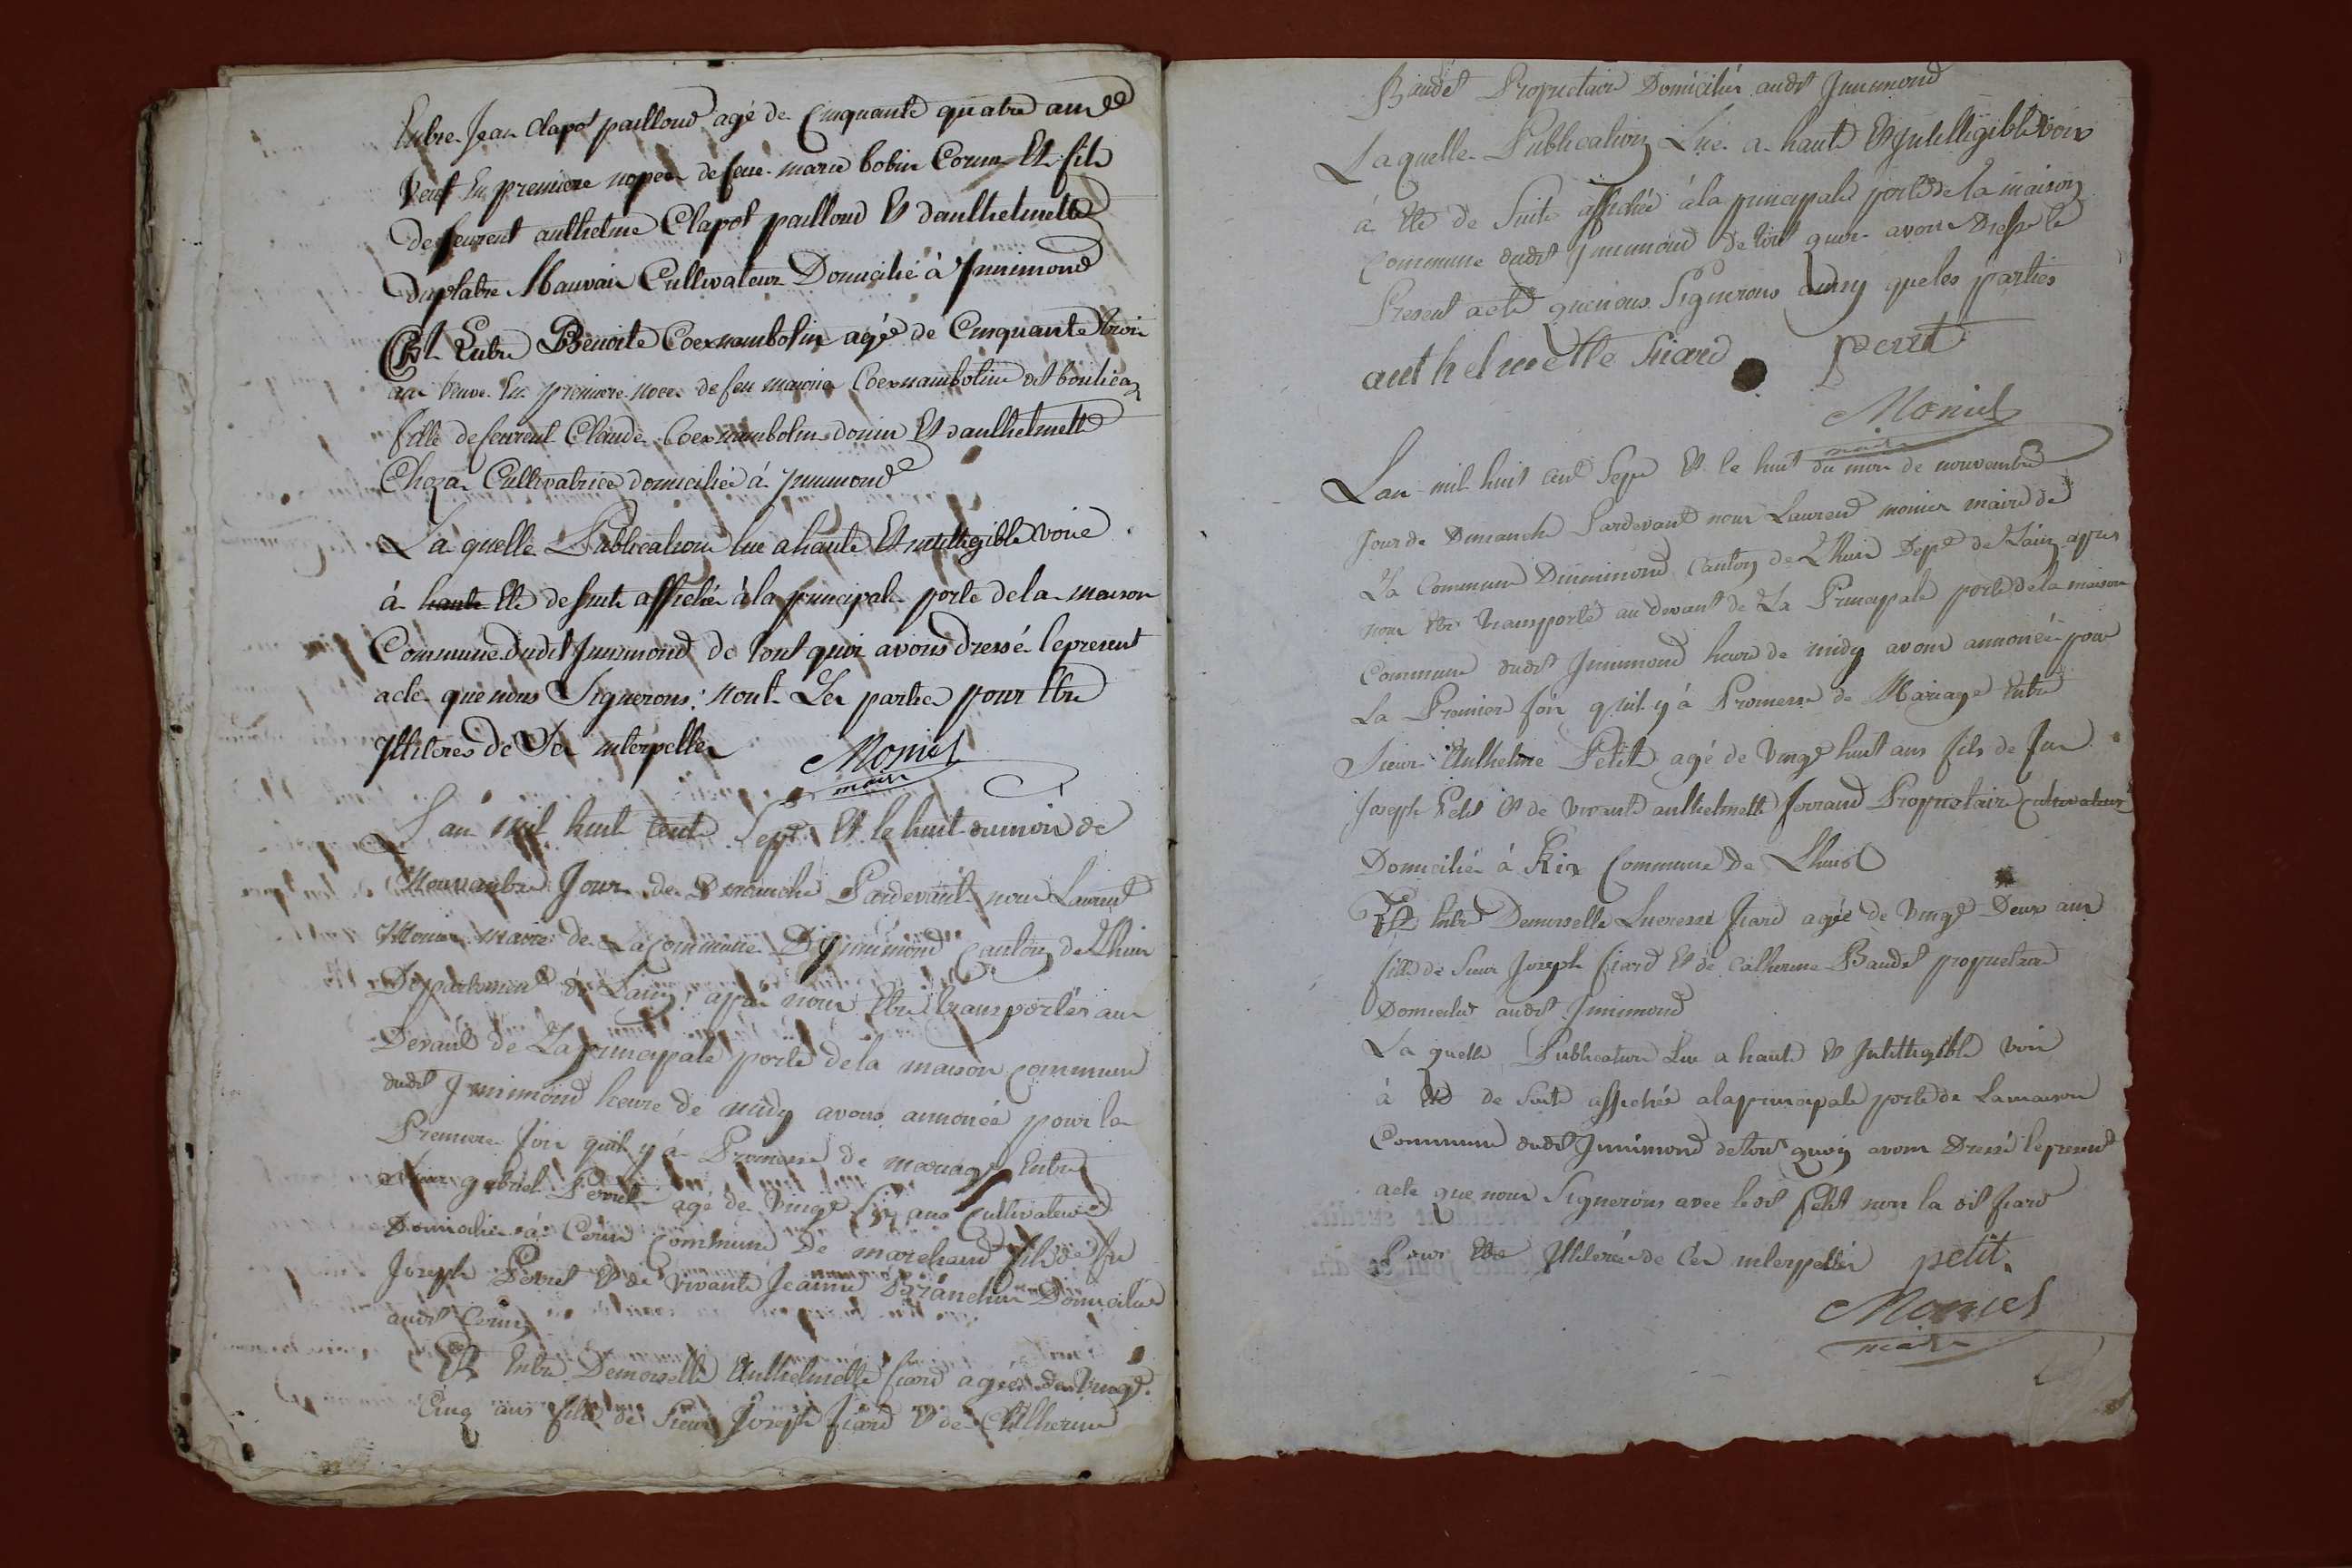 Entre Jean Clapot pailloud agé de Cinquante quatre année
Veuf En premiere nopces de feue marie bobin Corum Et fils
defeurent anthelme Clapot pailloud Et danthelmette
duplatre Mauvais Cultivateur Domicilié à Innimond
Et Entre Benoite Coexnambolin agée de Cinquante trois
an veuve En premiere noces de feu maurice Coexnambolin dit
fille defeurent Claude Coexnambolin donin Et danthelmette
Choza Cultivatrice domiciliée à Innimond
La quelle Publication lue ahaute Et intelligible voie
à haute Eté de suite affichée à la principale porte dela maison
Commune dudit Innimond de tout quoi avons dressé lepresent
acte que nous Signerons : nont Les partie pour Etre
Illiteres de Ser interpelles Monier
maire
Lan mil huit Cents Sept Et le huit du mois de
Nouvembre Jour de Dimanche Pardevant nous Laurent
Monier maire de La Commune Dinnimond Canton de Lhuis
Departement de Lain, apres nous Etre transportés au
Devant de La principale porte dela maison commune
dudit Innimond heure de midy avons annoncée pour la
Premiere fois quil y á Promesse de mariage Entre
Sieur gabriel Perret agé de vingt Six ans Cultivateur
Domicilié à Cerin Commune De marchand fils de fu
Joseph Perret Et de vivante Jeanne Branchin Domicilié
audit Cerin
Et Entre Demoiselle Anthelmette fiard agée de vingt
Cinq ans fille de Sieur Joseph fiard Et de Catherine
Baudet Propriétaire Domicilié audit Innimond
Laquelle Publication Lue a haute Et Intelligible voix
à Eté de Suite affichée à la principale porte de la maison
Commune dudit Innimond de tout quoi avons Dressé le
Present acte que nous Signerons ainsy que les parties
anthelmette fiard perret
Monier
maire
Lan mil huit cent Sept Et le huit du mois de nouvembre
Jour de Dimanche Pardevant nous Laurend monier maire de
La Commune Dinnimond Canton de Lhuis Dept de Lain apres
nous Etre transporté au devant de La Principale porte de la maison
Commune dudit Innimond heure de midy avons annoncée pour
La Premier fois quil y á Promesse de Mariage Entre
Sieur Anthelme Petit agé de vingt huit ans fils de fu
Joseph Petit Et de vivante anthelmette ferrand Propriétaire Cultivateur
Domicilié à Rix Commune de Lhuis
Et Entre Demoiselle Lucresse fiard agée de vingt Deux ans
fille de Sieur Joseph fiard Et de Catherine Baudet propriétaire
Domicilié audit Innimond
La quelle Publication Lue a haute Et Intelligible voix
à Eté de Suite affichée alaprincipale porte de Lamaison
Commune dudit Innimond de tout quoy avons Dressé lepresent
acte que nous Signerons avec ledit petit non la dit fiard
Pour Etre Illiterée de Cer interpellée petit
Monier
maire